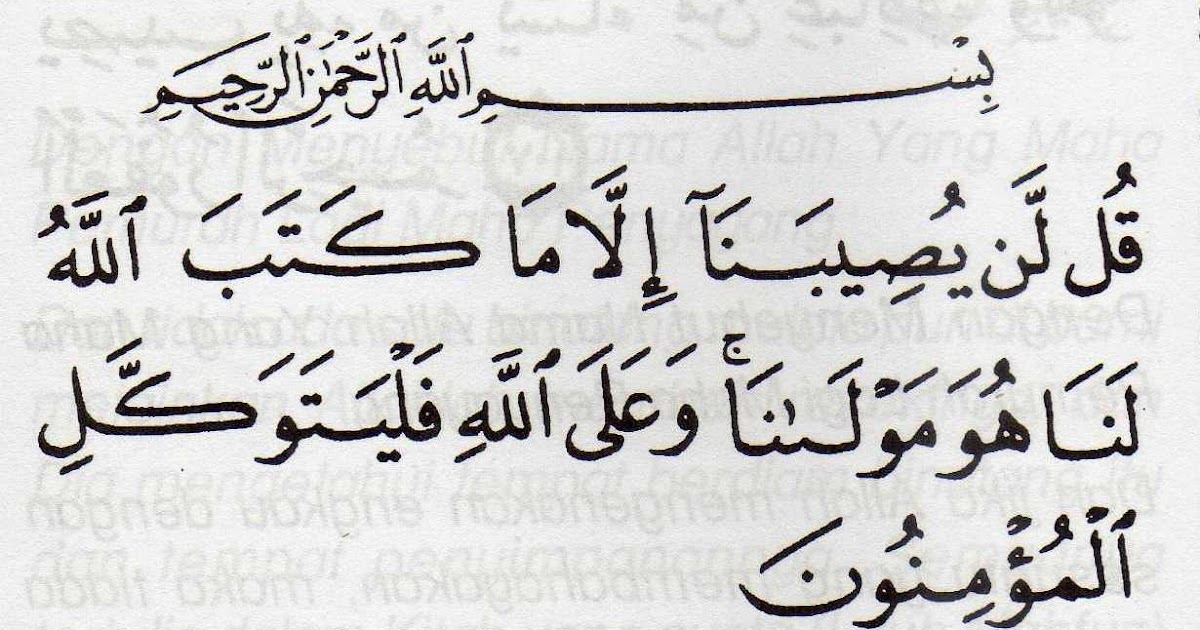 بِسْمِ ٱللَّهِ ٱلرَّحْمَٰنِ ٱلرَّحِيمِ
قُل لَّن يُصِيبَنَآ إِلَّا مَا كَتَبَ ٱللَّهُ
لَنَا هُوَ مَوْلَىٰنَا ۚ وَعَلَى ٱللَّهِ فَلْيَتَوَكَّلِ
ٱلْمُؤْمِنُونَ